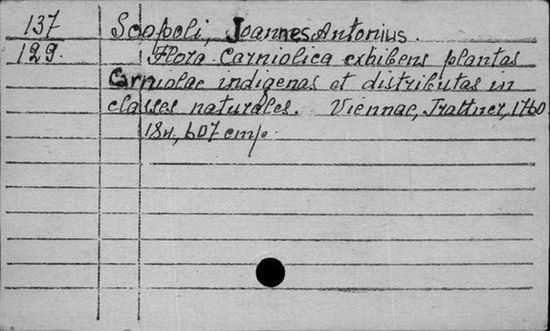 137 Scopoli, Joannes Antonius.
129. Flora Carniolica exhibens plantas
Carniolae indigenas et distributas in
classes naturales. Viennae, Trattner, 1760
18н, 607 стр.